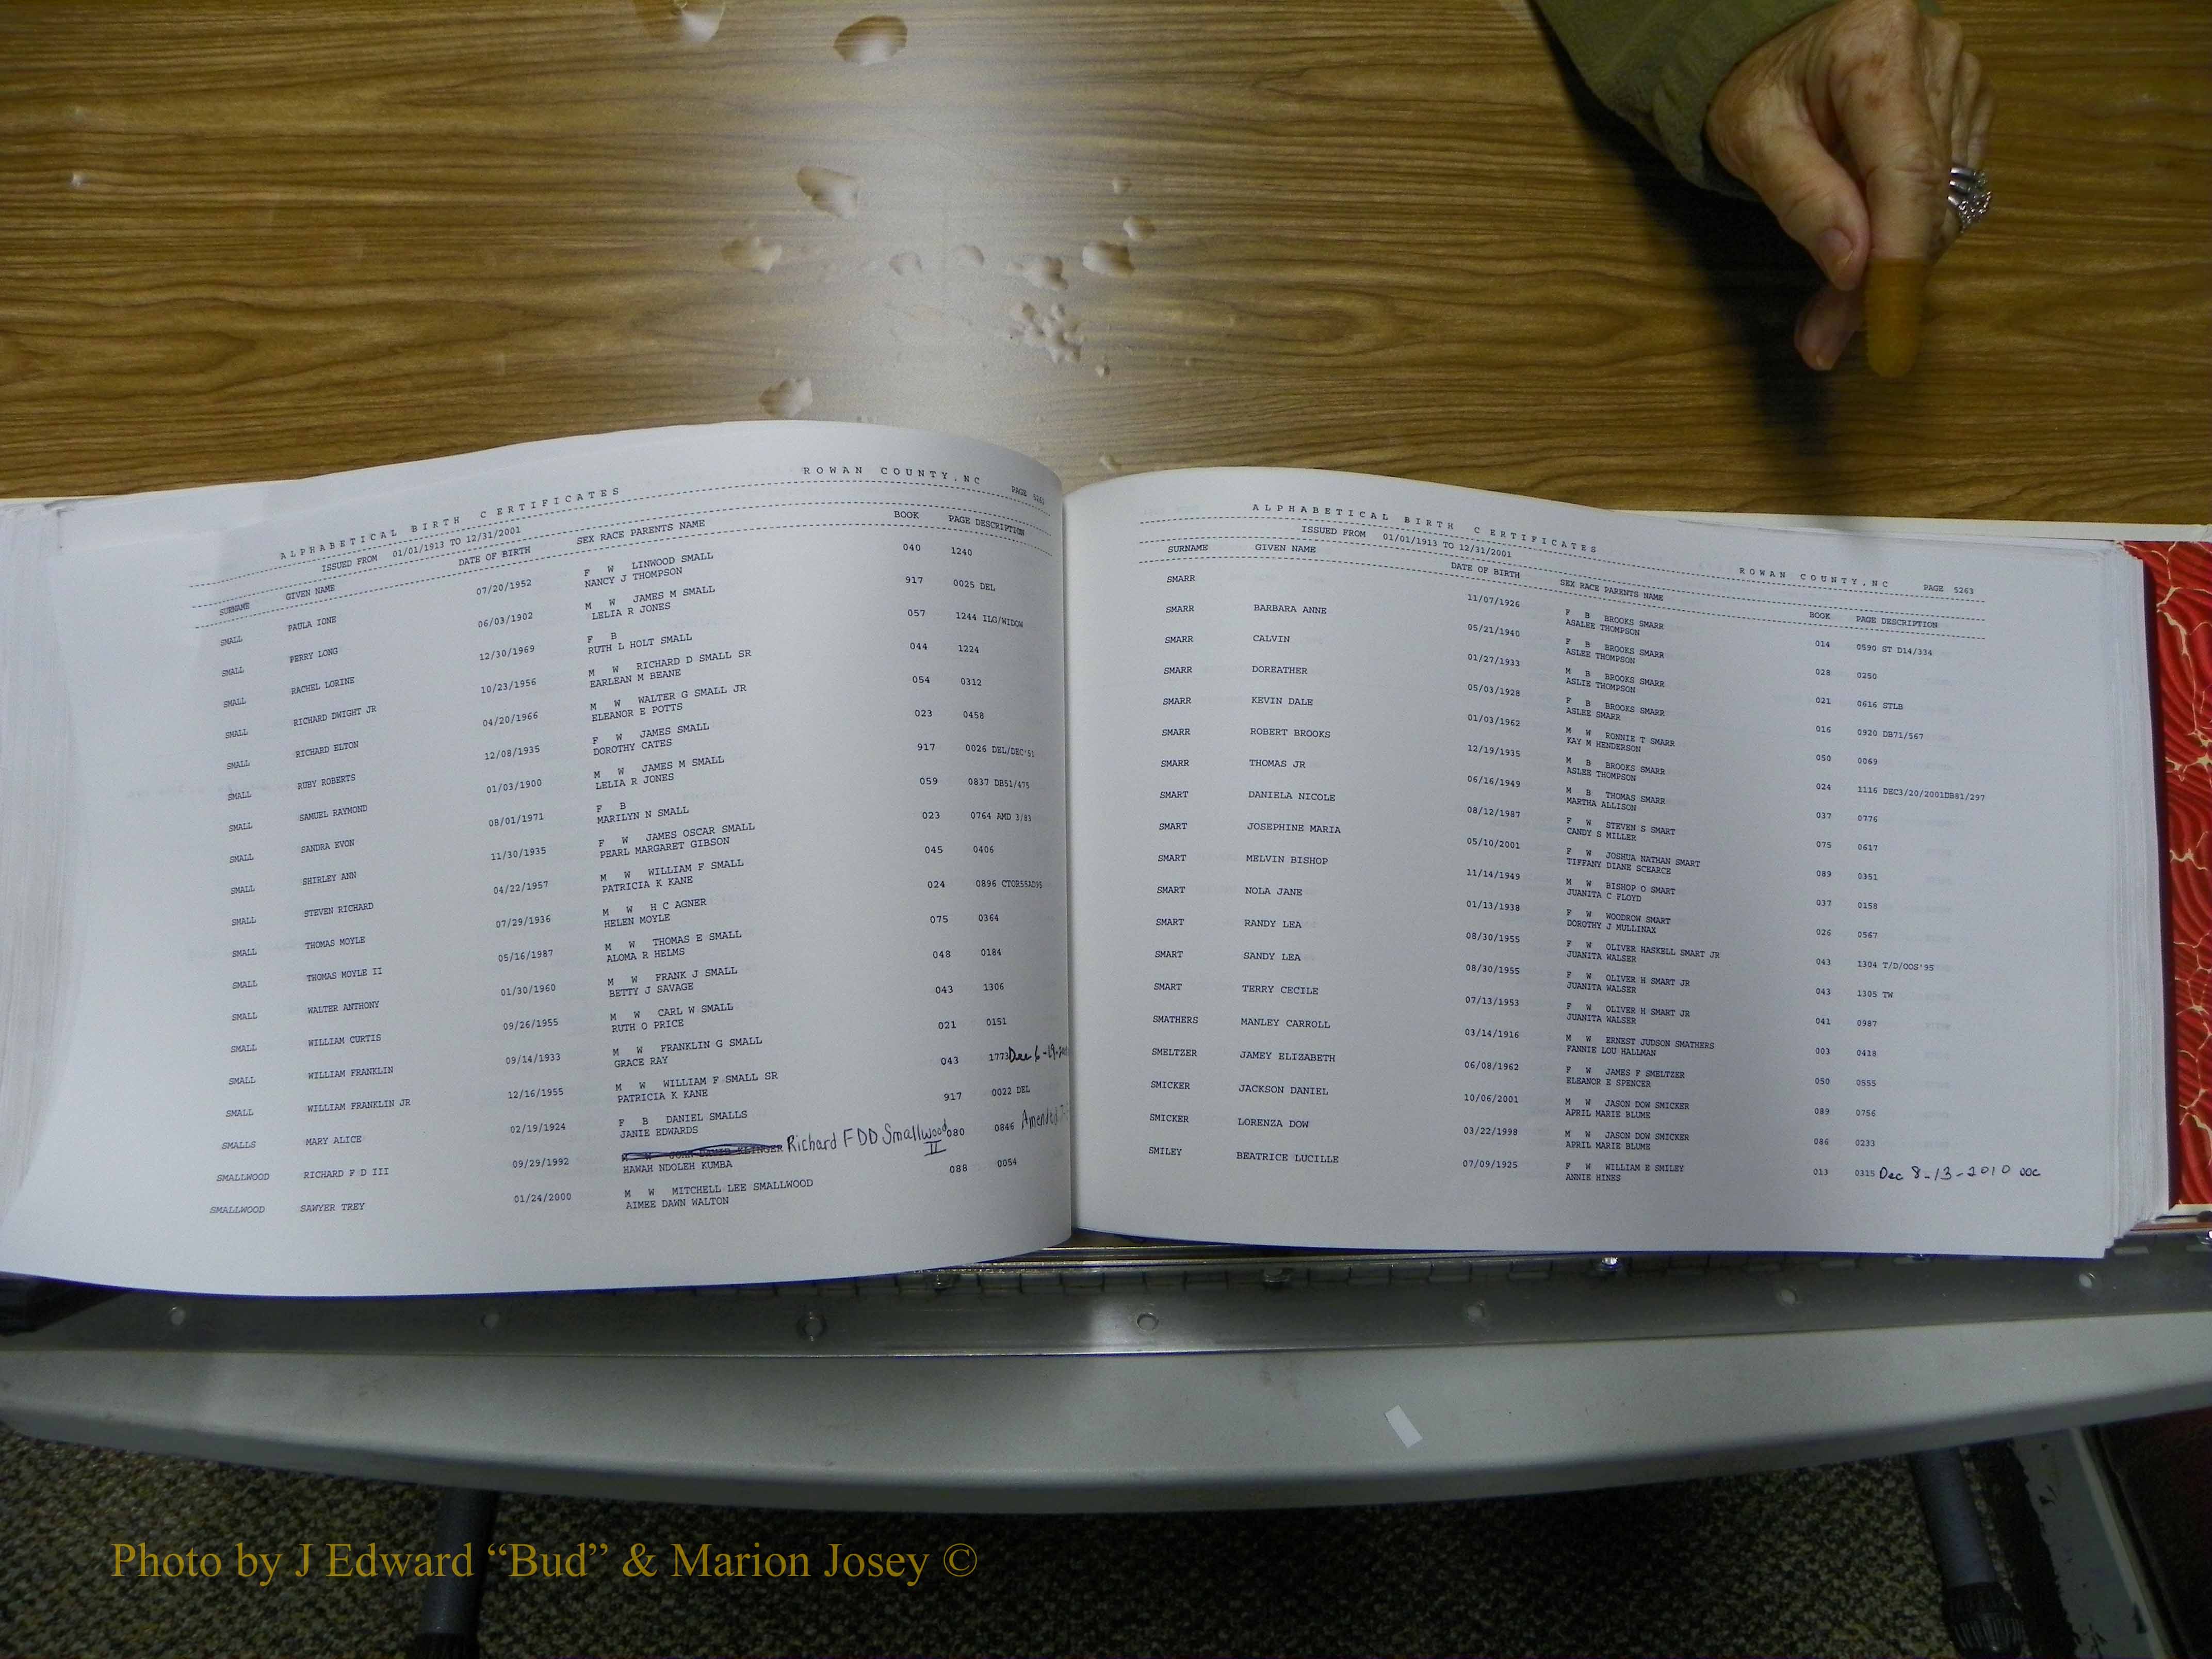 ALPHABETICAL BIRTH CERTIFICATES ROWAN COUNTY,NC PAGE
ISSUED FROM 01/01/1913 TO 12/31/2001
SURNAME GIVEN NAME DATE OF BIRTH SEX RACE PARENTS NAME BOOK PAGE DESCRIPTION
SMALL PAULA IONE 07/20/1952 F W LINWOOD SMALL 040 1240
NANCY J THOMPSON
SMALL PERRY LONG 06/03/1902 M W JAMES M SMALL 917 0025 DEL
LELIA R JONES
SMALL RACHEL LORINE 12/30/1969 F B 057 1244 ILG/WIDOW
RUTH L HOLT SMALL
SMALL RICHARD DWIGHT JR 10/23/1956 M W RICHARD D SMALL SR 044 1224
EARLEAN M BEANE
SMALL RICHARD ELTON 04/20/1966 M W WALTER G SMALL JR 054 0312
ELEANOR E POTTS
SMALL RUBY ROBERTS 12/08/1935 F W JAMES SMALL 023 0458
DOROTHY CATES
SMALL SAMUEL RAYMOND 01/03/1900 M W JAMES M SMALL 917 0026 DEL/DEC'51
LELIA R JONES
SMALL SANDRA EVON 08/01/1971 F B 059 0837 DB51/475
MARILYN N SMALL
SMALL SHIRLEY ANN 11/30/1935 F W JAMES OSCAR SMALL 023 0764 AMD 3/83
PEARL MARGARET GIBSON
SMALL STEVEN RICHARD 04/22/1957 M W WILLIAM F SMALL 045 0406
PATRICIA K KANE
SMALL THOMAS MOYLE 07/29/1936 M W H C AGNER 024 0896
HELEN MOYLE
SMALL THOMAS MOYLE II 05/16/1987 M W THOMAS E SMALL 075 0364
ALOMA R HELMS
SMALL WALTER ANTHONY 01/30/1960 M W FRANK J SMALL 048 0184
BETTY J SAVAGE
SMALL WILLIAM CURTIS 09/26/1955 M W CARL W SMALL 043 1306
RUTH O PRICE
SMALL WILLIAM FRANKLIN 09/14/1933 M W FRANKLIN G SMALL 021 0151
GRACE RAY
SMALL WILLIAM FRANKLIN JR 12/16/1955 M W WILLIAM F SMALL SR 043 1773 Dec 6-19-
PATRICIA K KANE
SMALLS MARY ALICE 02/19/1924 F B DANIEL SMALLS 917 0022 DEL
JANIE EDWARDS
SMALLWOOD RICHARD F D III 09/29/1992 M W JOHN DAVID KLINGER Richard FDD Smallwood II 080 0846 Amended
HAWAH NDOLEH KUMBA
SMALLWOOD SAWYER TREY 01/24/2000 M W MITCHELL LEE SMALLWOOD 088 0054
AIMEE DAWN WALTON
ALPHABETICAL BIRTH CERTIFICATES ROWAN COUNTY,NC PAGE 5263
ISSUED FROM 01/01/1913 TO 12/31/2001
SURNAME GIVEN NAME DATE OF BIRTH SEX RACE PARENTS NAME BOOK PAGE DESCRIPTION
SMARR 11/07/1926 F B BROOKS SMARR 014 0590 ST D14/334
ASALEE THOMPSON
SMARR BARBARA ANNE 05/21/1940 F B BROOKS SMARR 028 0250
ASLEE THOMPSON
SMARR CALVIN 01/27/1933 M B BROOKS SMARR 021 0616 STLB
ASLIE THOMPSON
SMARR DOREATHER 05/03/1928 F B BROOKS SMARR 016 0920 DB71/567
ASLEE SMARR
SMARR KEVIN DALE 01/03/1962 M W RONNIE T SMARR 050 0069
KAY M HENDERSON
SMARR ROBERT BROOKS 12/19/1935 M B BROOKS SMARR 024 1116 DEC3/20/2001DB81/297
ASLEE THOMPSON
SMARR THOMAS JR 06/16/1949 M B THOMAS SMARR 037 0776
MARTHA ALLISON
SMART DANIELA NICOLE 08/12/1987 F W STEVEN S SMART 075 0617
CANDY S MILLER
SMART JOSEPHINE MARIA 05/10/2001 F W JOSHUA NATHAN SMART 089 0351
TIFFANY DIANE SCEARCE
SMART MELVIN BISHOP 11/14/1949 M W BISHOP O SMART 037 0158
JUANITA C FLOYD
SMART NOLA JANE 01/13/1938 F W WOODROW SMART 026 0567
DOROTHY J MULLINAX
SMART RANDY LEA 08/30/1955 F W OLIVER HASKELL SMART JR 043 1304 T/D/OOS'95
JUANITA WALSER
SMART SANDY LEA 08/30/1955 F W OLIVER H SMART JR 043 1305 TW
JUANITA WALSER
SMART TERRY CECILE 07/13/1953 F W OLIVER H SMART JR 041 0987
JUANITA WALSER
SMATHERS MANLEY CARROLL 03/14/1916 M W ERNEST JUDSON SMATHERS 003 0418
FANNIE LOU HALLMAN
SMELTZER JAMEY ELIZABETH 06/08/1962 F W JAMES F SMELTZER 050 0555
ELEANOR E SPENCER
SMICKER JACKSON DANIEL 10/06/2001 M W JASON DOW SMICKER 089 0756
APRIL MARIE BLUME
SMICKER LORENZA DOW 03/22/1998 M W JASON DOW SMICKER 086 0233
APRIL MARIE BLUME
SMILEY BEATRICE LUCILLE 07/09/1925 F W WILLIAM E SMILEY 013 0315 Dec 8-13-2010 OOC
ANNIE HINES
Photo by J Edward “Bud” & Marion Josey ©